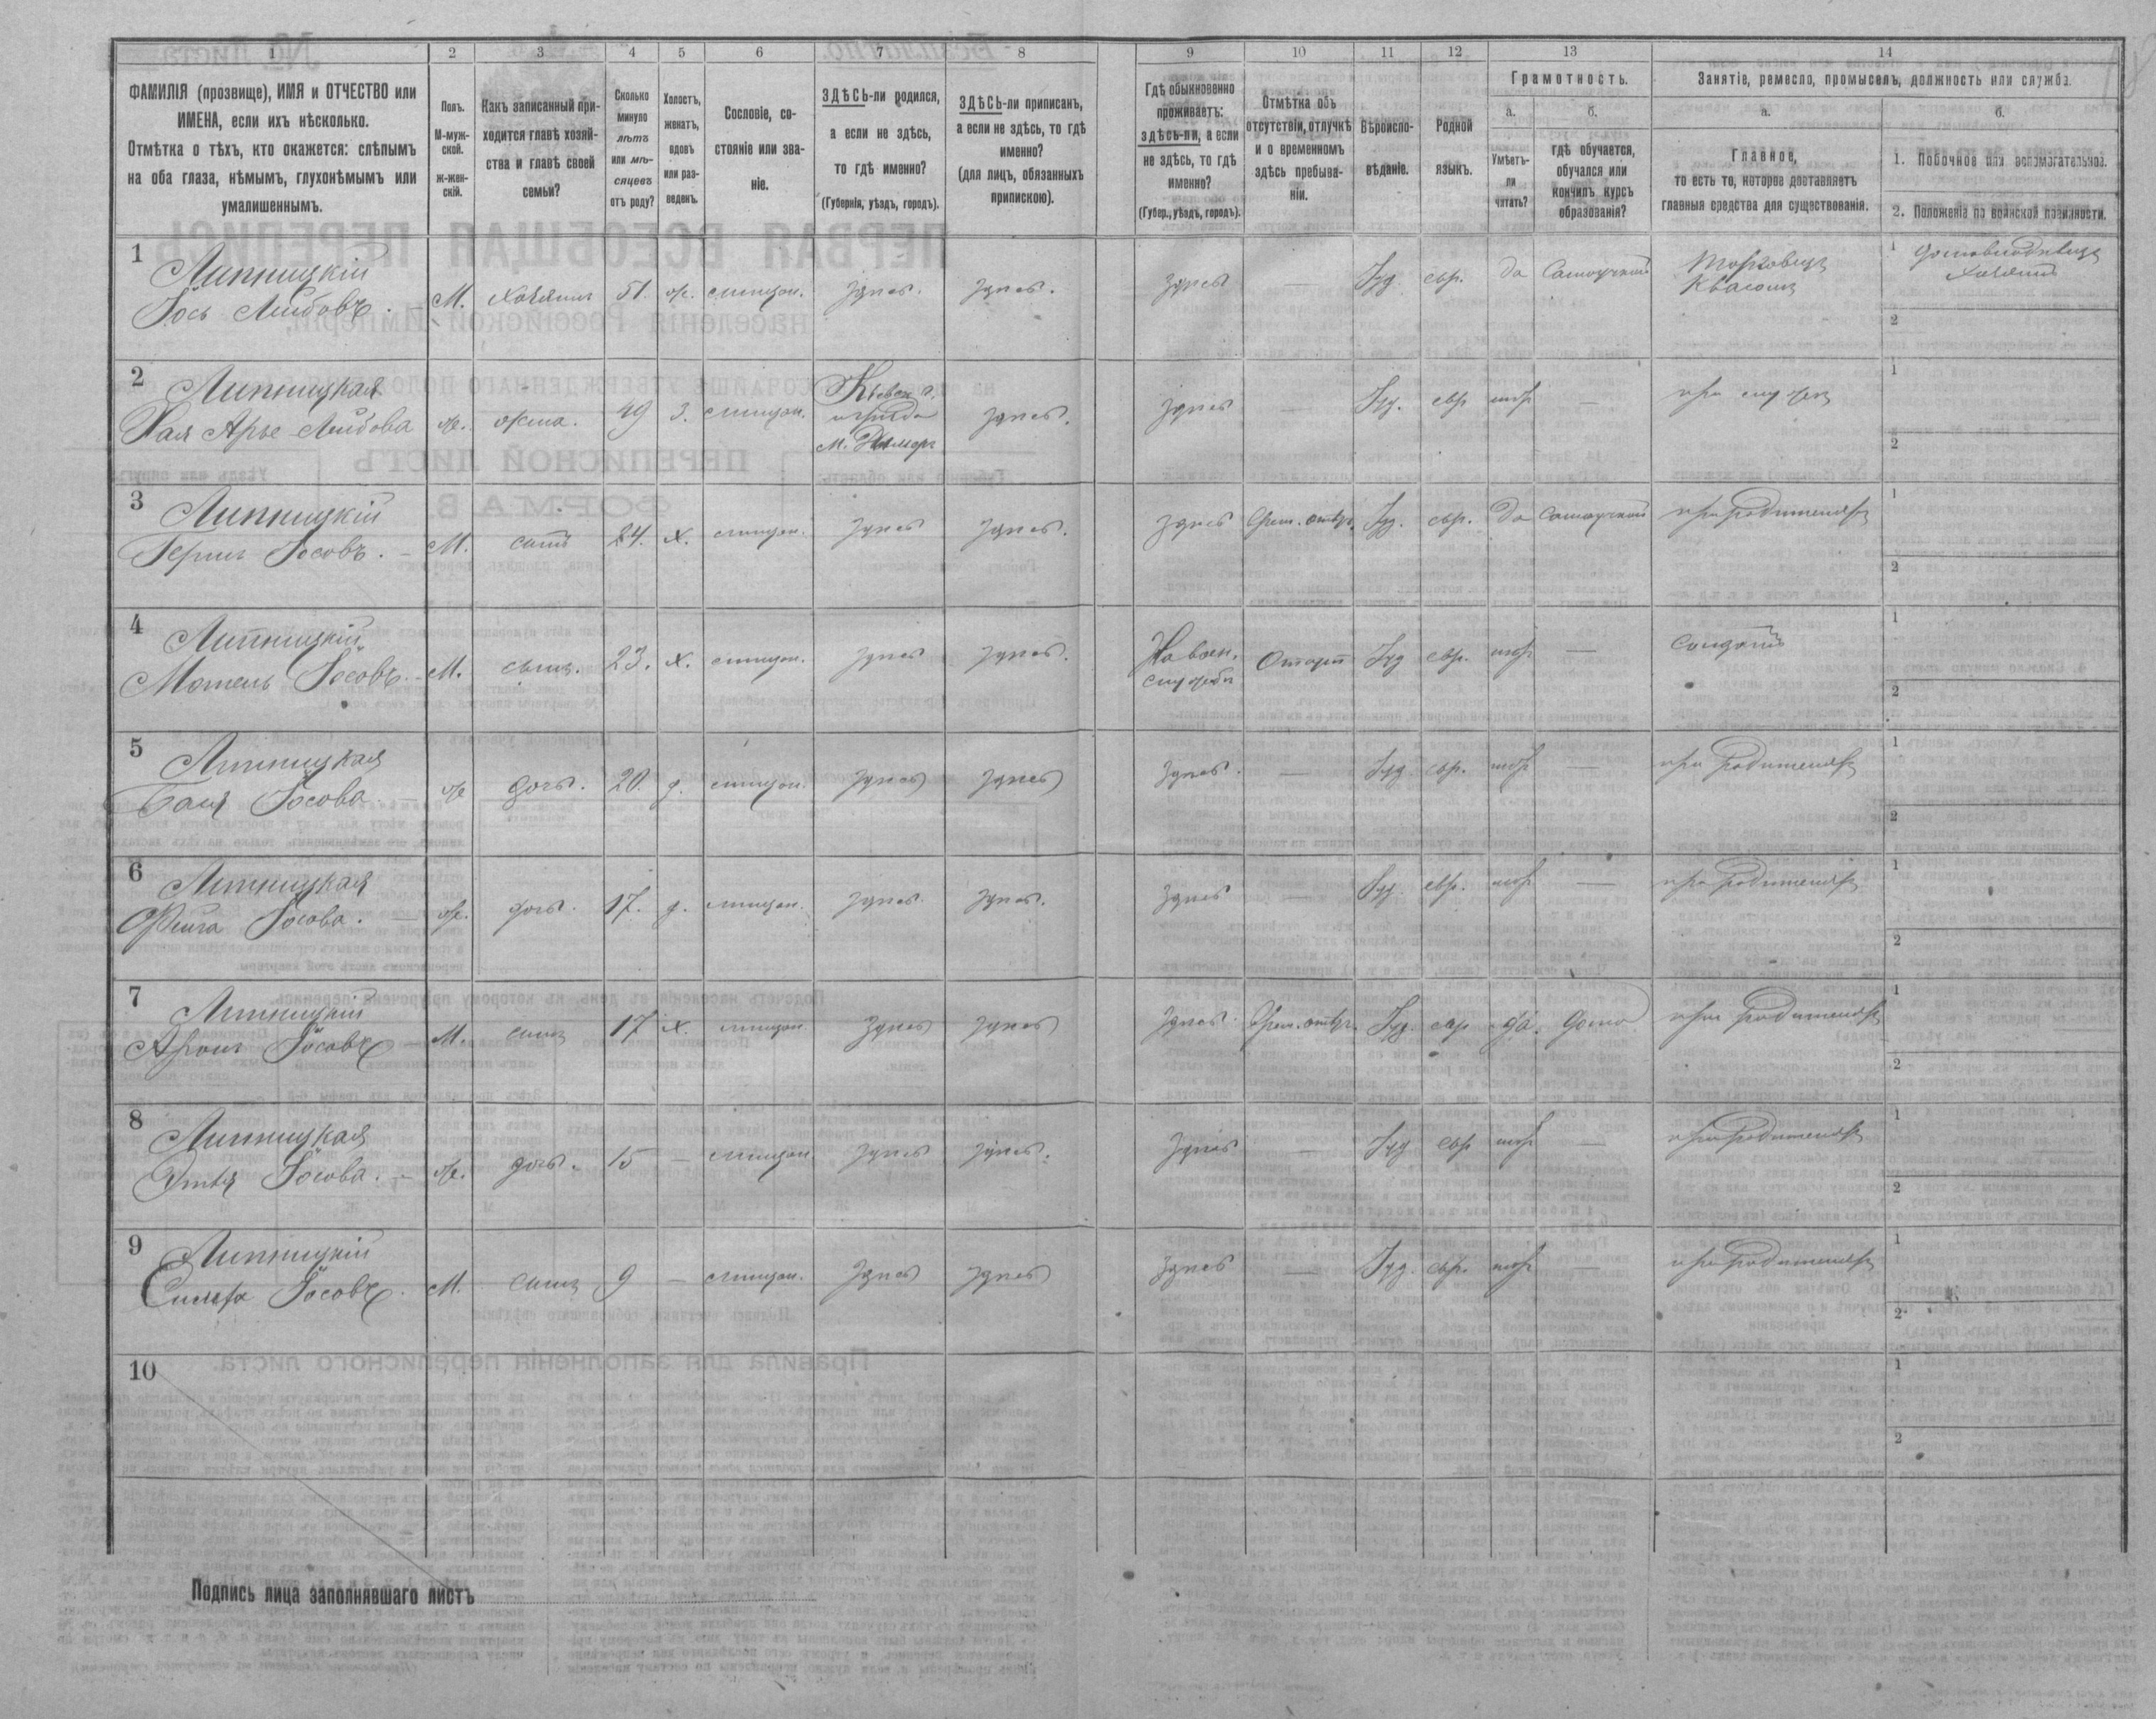 1 2 3 4 5 6 7 8 9 10 11 12 13 14
ФАМИЛІЯ (прозвище), ИМЯ и ОТЧЕСТВО или
ИМЕНА, если ихъ нѣсколько.
Отмѣтка о тѣхъ, кто окажется: слѣпымъ
на оба глаза, нѣмымъ, глухонѣмымъ или
умалишеннымъ.
Полъ.
М-муж-
ской.
ж-жен-
скій.
Какъ записанный при-
ходится главѣ хозяй-
ства и главѣ своей
семьи?
Сколько
минуло
лѣтъ
или мѣ-
сяцевъ
отъ роду?
Холостъ,
женатъ,
вдовъ
или раз-
веденъ.
Сословіе, со-
стояніе или зва-
ніе.
ЗДѢСЬ-ли родился,
а если не здѣсь,
то гдѣ именно?
(Губернія, уѣздъ, городъ).
ЗДѢСЬ-ли приписанъ,
а если не здѣсь, то гдѣ
именно?
(для лицъ, обязанныхъ
припискою).
Гдѣ обыкновенно
проживаетъ:
здѣсь-ли, а если
не здѣсь, то гдѣ
именно?
(Губер., уѣздъ, городъ).
Отмѣтка объ
отсутствіи, отлучкѣ
и о временномъ
здѣсь пребыва-
ніи.
Вѣроиспо-
вѣданіе.
Родной
языкъ.
Грамотность.
а.
Умѣетъ-
ли
читать?
б.
гдѣ обучается,
обучался или
кончилъ курсъ
образованія?
Занятіе, ремесло, промыселъ, должность или служба.
а.
Главное,
то есть то, которое доставляетъ
главныя средства для существованія.
б.
1. Побочное или вспомогательное.
2. Положеніе по воинской повинности.
1
Липницкій
Іось Лейбовъ. М. Хозяинъ 51. ж. мѣщан. здѣсь. здѣсь. здѣсь — Іуд. евр. да Самоучкой Торговецъ
Квасомъ
1 Домовладѣлецъ
Хозяинъ
2
2
Липницкая
Хая Арье-Лейбова ж. жена. 49 з. мѣщан. Кіевск. г.
здѣсь. здѣсь — Іуд. евр нѣтъ — при мужѣ
1
2
3
Липницкій
Іосовъ. М. сынъ 24. х. мѣщан. здѣсь здѣсь. здѣсь Врем. отлуч. Іуд. евр. да Самоучкой при родителяхъ
1
2
4
Липницкій
Мотель Іосовъ. М. сынъ. 23. х. мѣщан. здѣсь здѣсь. На воен.
службѣ Іуд евр. нѣтъ — солдатъ
1
2
5
Липницкая
Іосова. ж дочь. 20. д. мѣщан. здѣсь здѣсь здѣсь. — Іуд. евр. нѣтъ — при родителяхъ
1
2
6
Липницкая
Фейга Іосова. ж. дочь. 17. д. мѣщан. здѣсь. здѣсь. здѣсь — Іуд. евр. нѣтъ — при родителяхъ
1
2
7
Липницкій
Аронъ Іосовъ М. сынъ 17 х. мѣщан здѣсь здѣсь здѣсь. Врем. отлуч. Іуд. евр да. Дома при родителяхъ
1
2
8
Липницкая
Іосова. ж. дочь. 15 — мѣщан. здѣсь здѣсь. здѣсь — Іуд евр нѣтъ — при родителяхъ
1
2
9
Липницкій
Симха Іосовъ. М. сынъ 9 — мѣщан. здѣсь здѣсь здѣсь — Іуд. евр. нѣтъ — при родителяхъ
1
2
10
1
2
Подпись лица заполнявшаго листъ